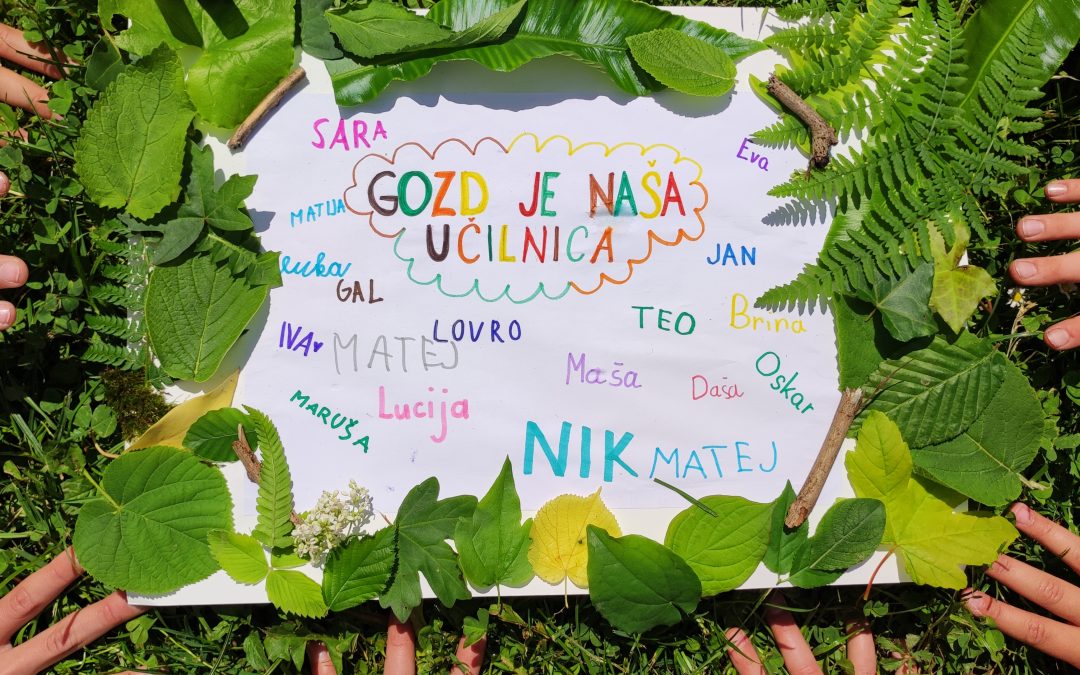 SARA
Eva
GOZD JE NAŠA
UČILNICA
MATIJA
JAN
GAL
Brina
TEO
LOVRO
IVA
MATEJ
Maša
Daša
Oskar
Lucija
MARUŠA
NIK
MATEJ